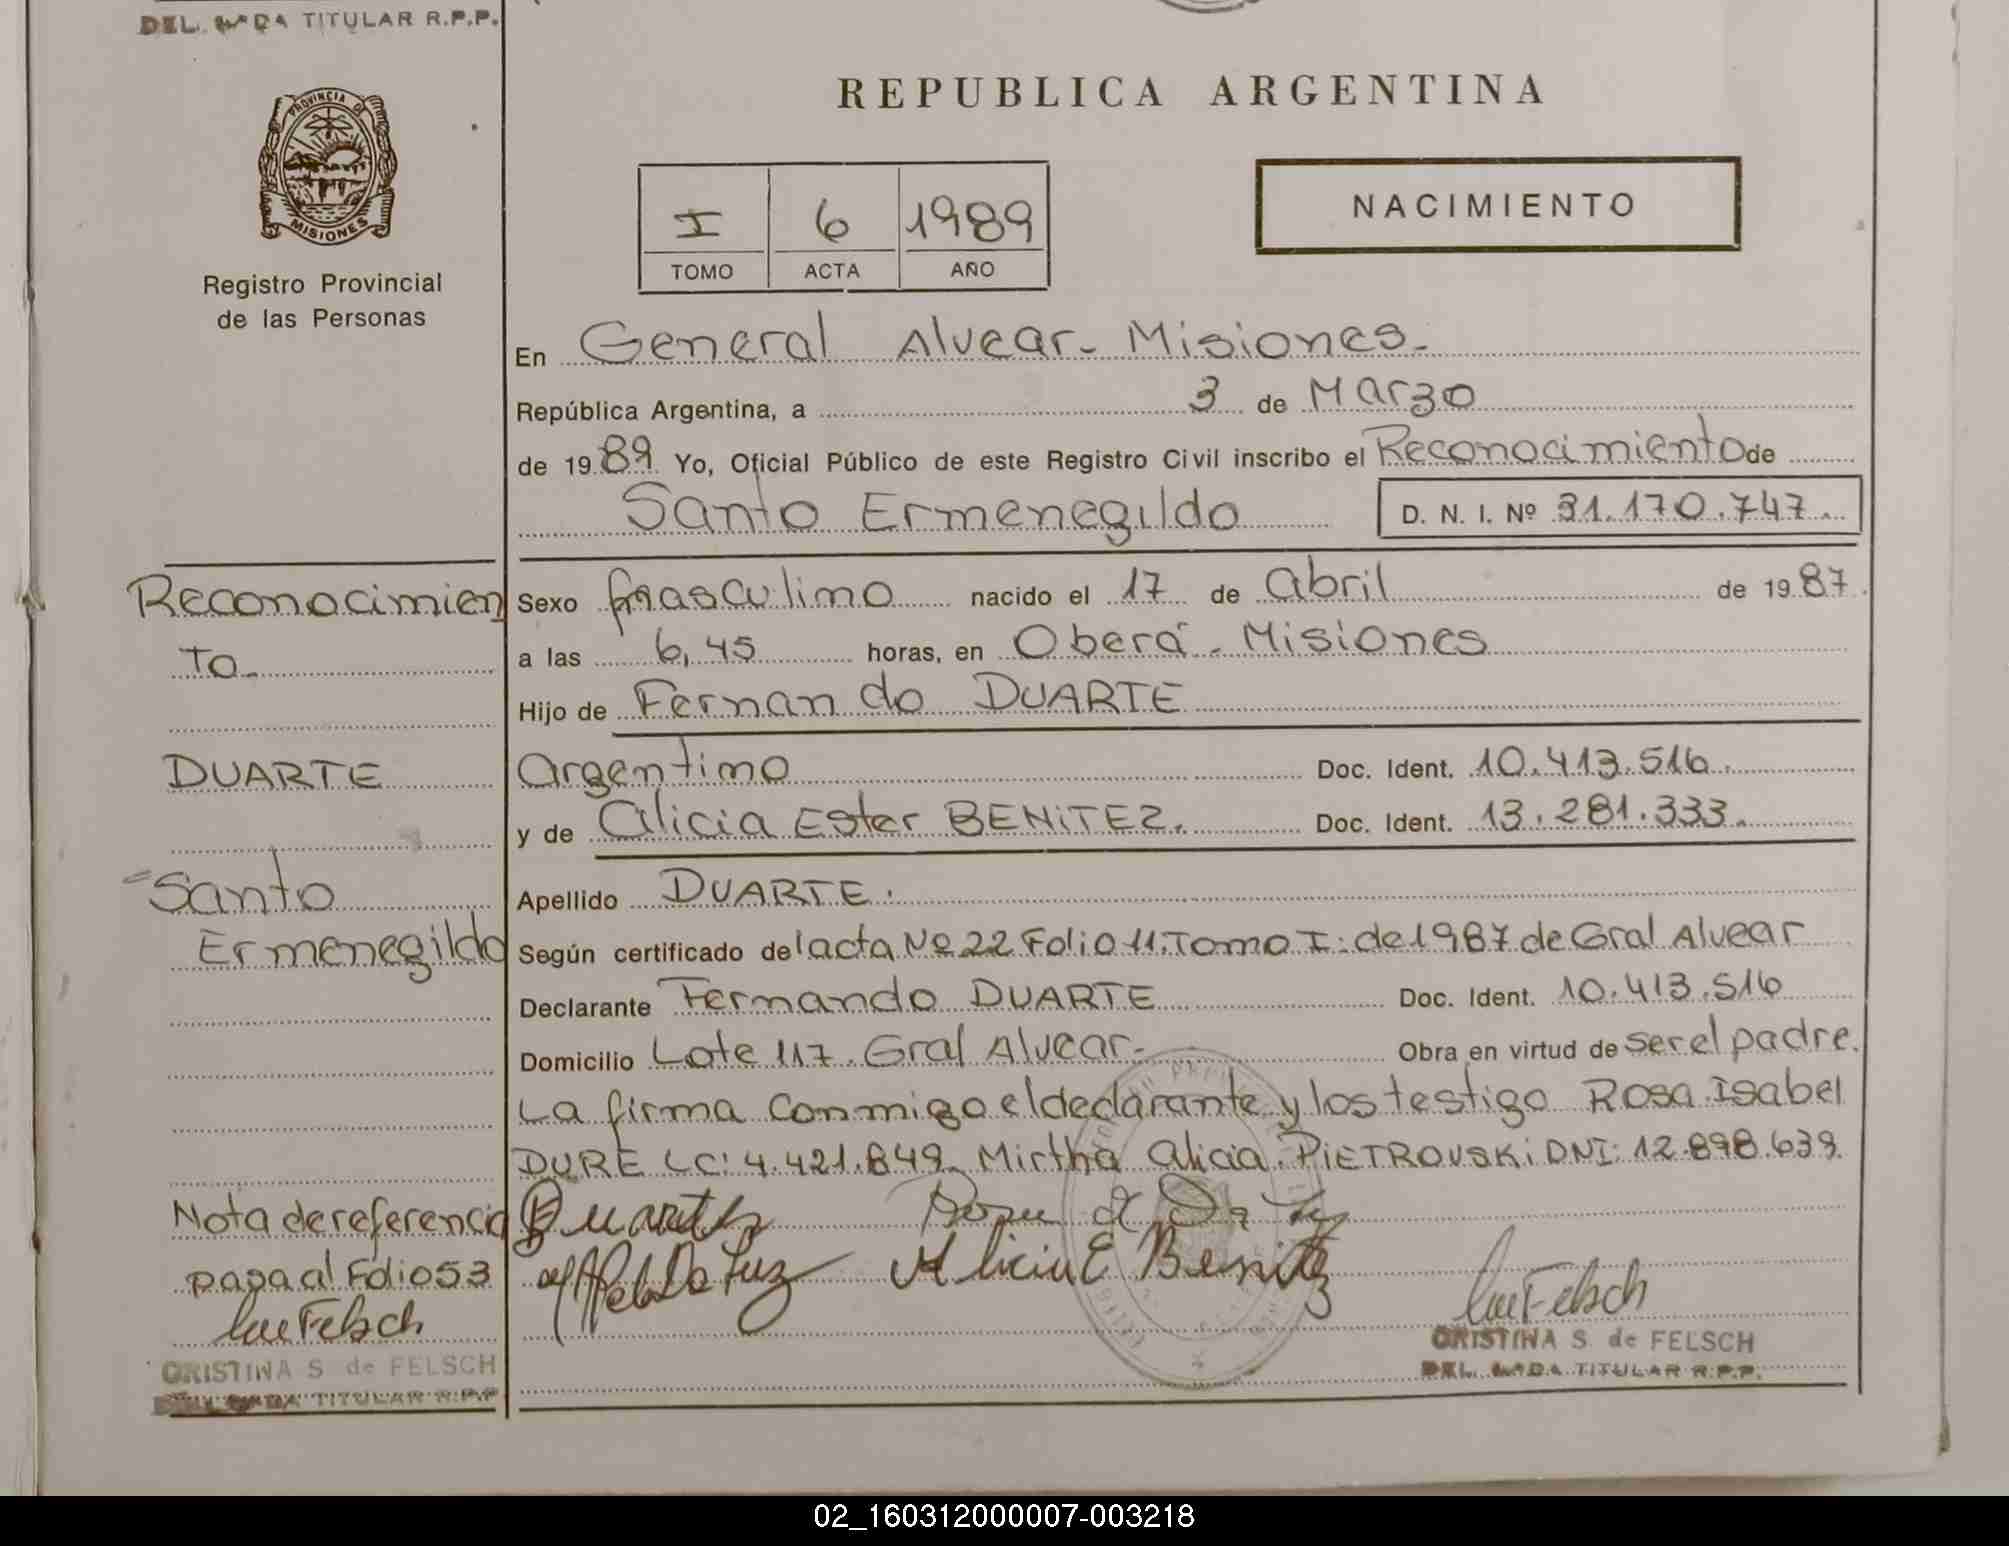 DEL. TITULAR R.P.P.
PROVINCIA DE
MISIONES
Registro Provincial
de las Personas
Reconocimien
to.
DUARTE
Santo
Ermenegildo
Nota de referencia
pasa al Folio 53
CRISTINA S. de FELSCH
TITULAR R.P.P.
REPUBLICA ARGENTINA
I 6 1989
TOMO ACTA AÑO
NACIMIENTO
En General Alvear - Misiones -
República Argentina, a 3 de Marzo
de 19 89 Yo, Oficial Público de este Registro Civil inscribo el Reconocimiento de
Santo Ermenegildo D. N. I. Nº 31.170.747.
Sexo masculino nacido el 17 de abril de 19 87
a las 6,45 horas, en Oberá - Misiones
Hijo de Fernando DUARTE
argentino Doc. Ident. 10.413.516.
y de Alicia Ester BENITEZ. Doc. Ident. 13.281.333.
Apellido DUARTE.
Según certificado del acta Nº 22 Folio 11. Tomo I: de 1987 de Gral Alvear
Declarante Fernando DUARTE Doc. Ident. 10.413.516
Domicilio Lote 117. Gral Alvear - Obra en virtud de ser el padre.
La firma conmigo el declarante y los testigo Rosa Isabel
DURE LC: 4.421.849. Mirtha Alicia PIETROVSKI DNI: 12.898.639.
Alicia E Benitez
CRISTINA S. de FELSCH
DEL. TITULAR R.P.P.
02_160312000007-003218